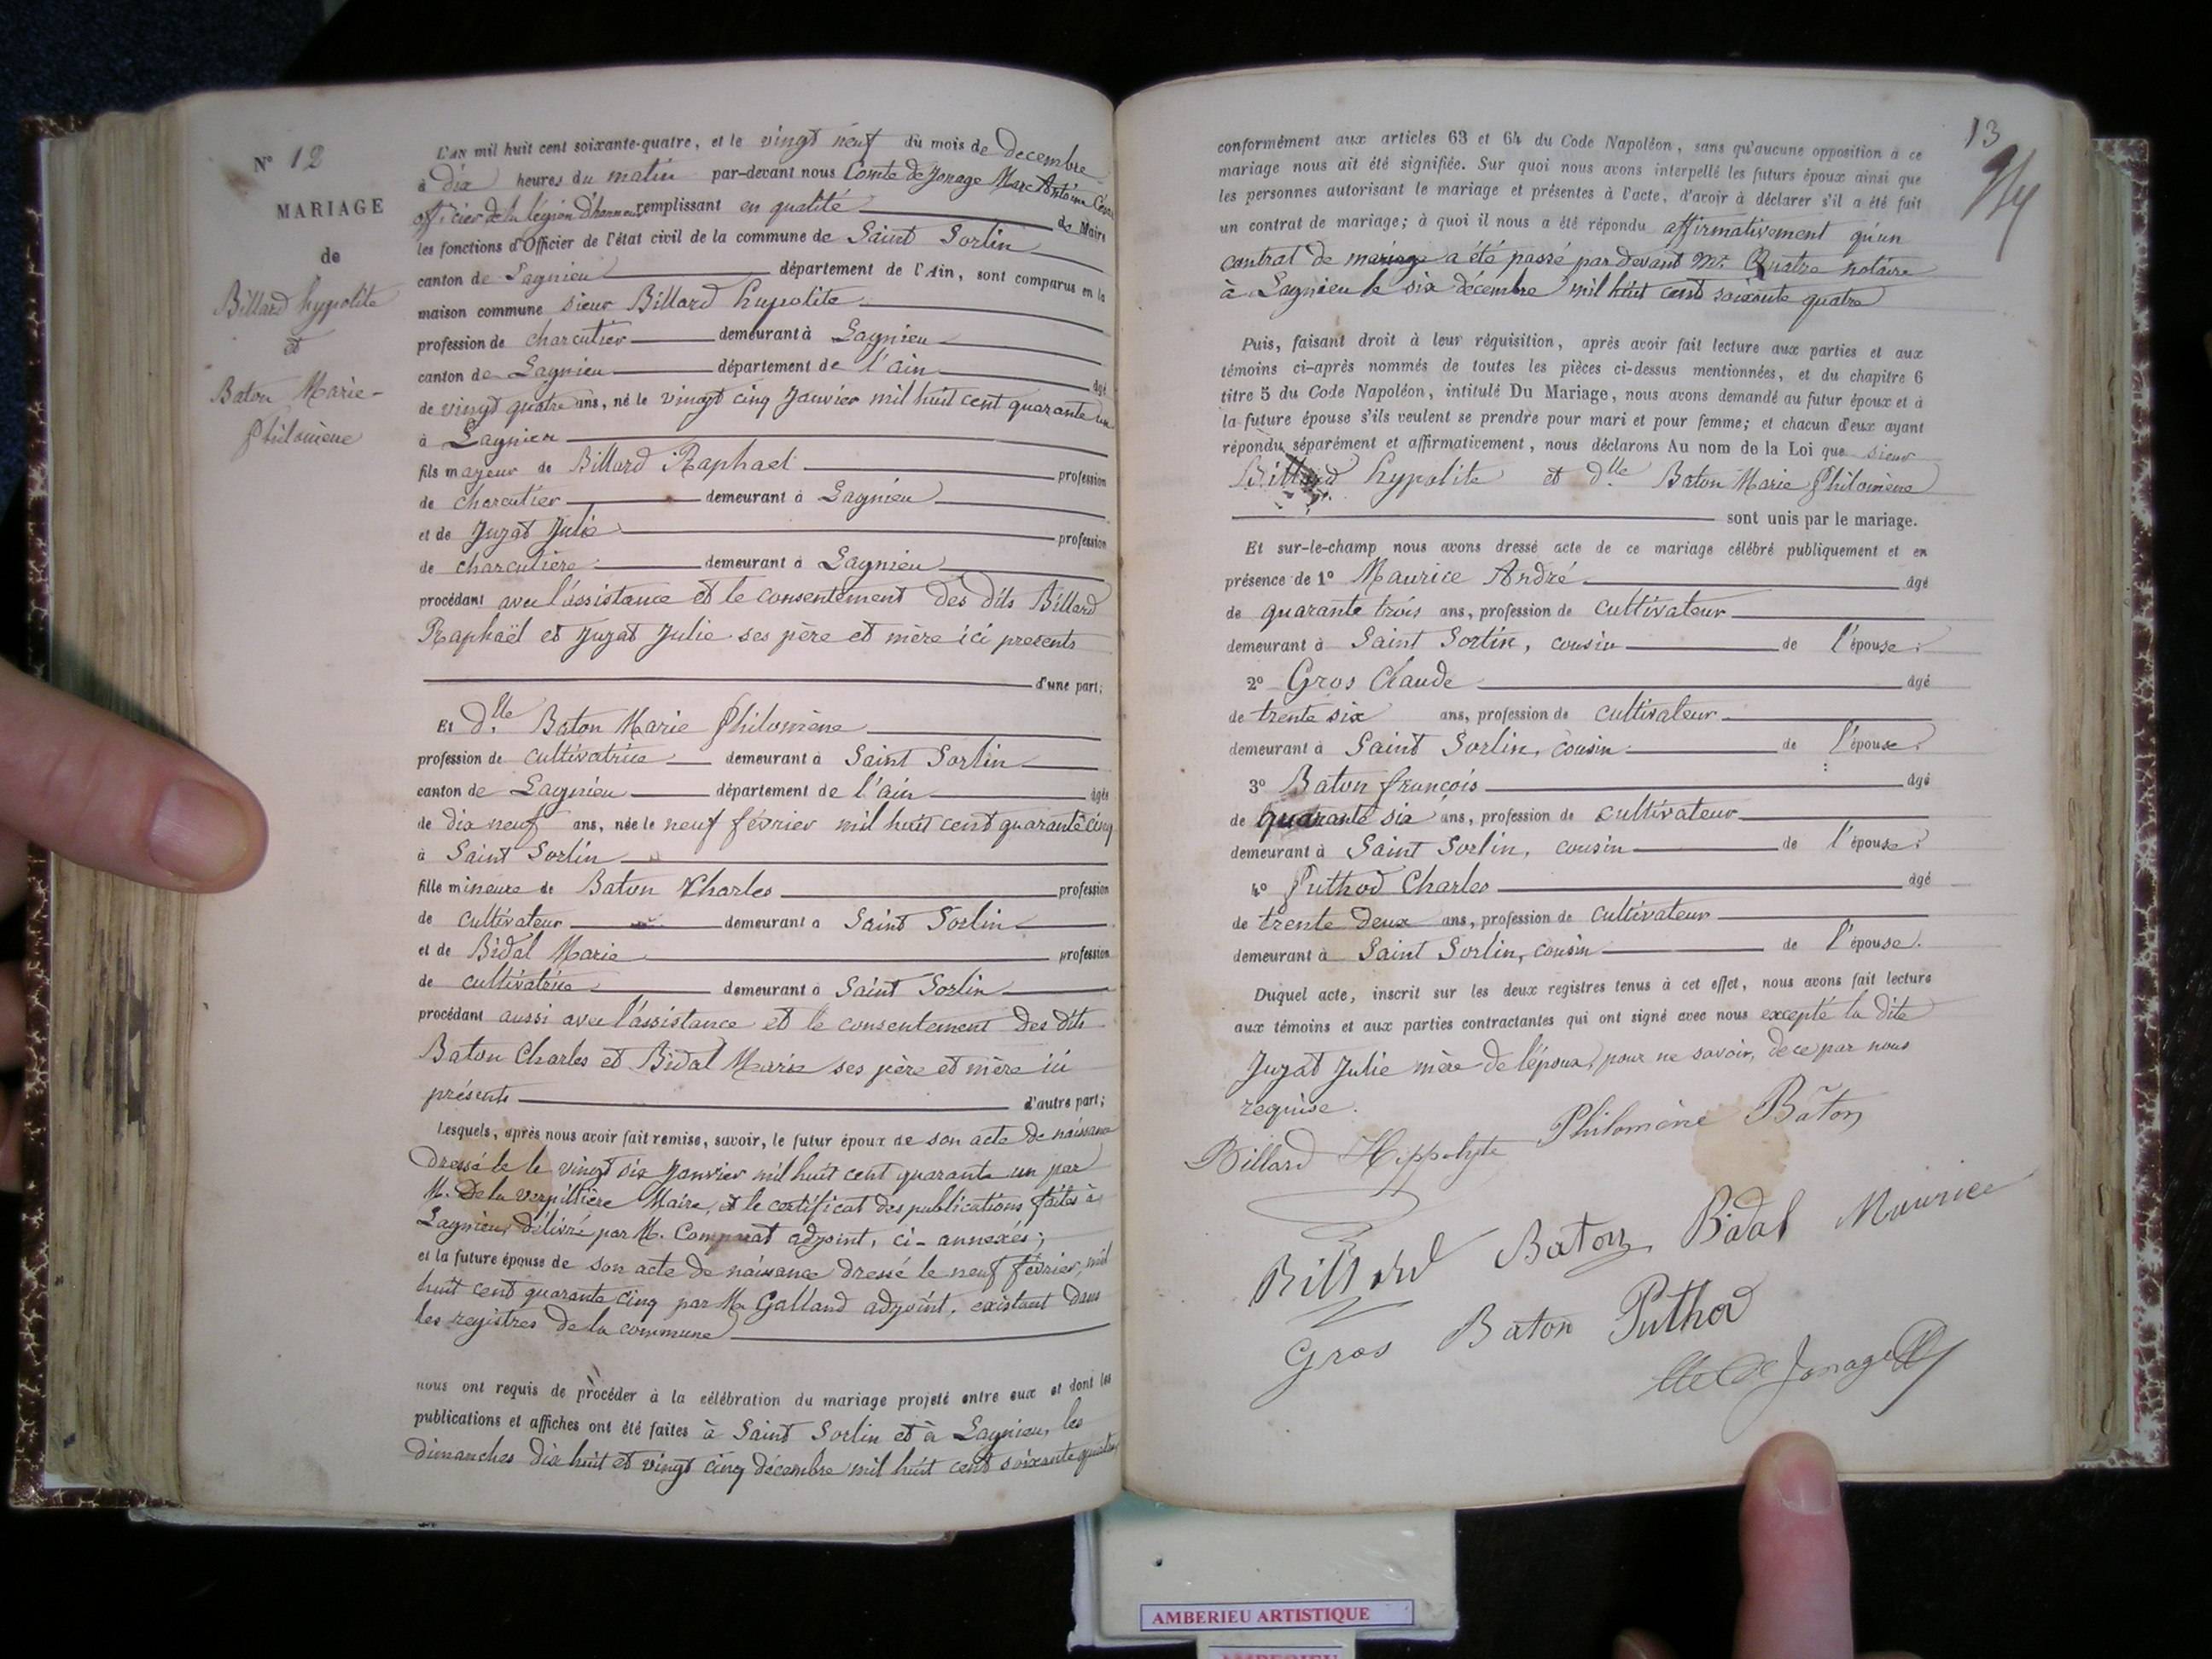 N° 12
MARIAGE
de
Billard hypolite
et
Baton Marie-
Philomène
L'AN mil huit cent soixante-quatre, et le vingt neuf du mois de decembre
à dix heures du matin par-devant nous Comte de Jonage Marc Antoine César
officier de la légion d'honneur remplissant en qualité de Maire
les fonctions d'Officier de l'état civil de la commune de Saint Sorlin
canton de Lagnieu département de l'Ain, sont comparus en la
maison commune sieur Billard hypolite
profession de charcutier demeurant à Lagnieu
canton de Lagnieu département de l'ain âgé
de vingt quatre ans, né le vingt cinq Janvier mil huit cent quarante un
à Lagnieu
fils majeur de Billard Raphael profession
de charcutier demeurant à Lagnieu
et de Juzat Julie profession
de charcutière demeurant à Lagnieu
procédant avec l'assistance et le consentement des dits Billard
Raphaël et Juzat Julie ses père et mère ici presents
d'une part;
Et Dlle Baton Marie Philomène
profession de cultivatrice demeurant à Saint Sorlin
canton de Lagnieu département de l'ain âgée
de dix neuf ans, née le neuf février mil huit cent quarante cinq
à Saint Sorlin
fille mineure de Baton Charles profession
de cultivateur demeurant à Saint Sorlin
et de Bidal Marie profession
de cultivatrice demeurant à Saint Sorlin
procédant aussi avec l'assistance et le consentement des dits
Baton Charles et Bidal Marie ses père et mère ici
présents d'autre part;
Lesquels, après nous avoir fait remise, savoir, le futur époux de son acte de naissance
dressé le le vingt six Janvier mil huit cent quarante un par
M. De la verpillière Maire, et le certificat des publications faites à
Lagnieu, délivré par M. Compnat adjoint, ci-annexés;
et la future épouse de son acte de naissance dressé le neuf février mil
huit cent quarante cinq par Mr Galland adjoint, existant dans
les registres de la commune
nous ont requis de procéder à la célébration du mariage projeté entre eux et dont les
publications et affiches ont été faites à Saint Sorlin et à Lagnieu, les
dimanches dix huit et vingt cinq décembre mil huit cent soixante quatre
13
conformément aux articles 63 et 64 du Code Napoléon, sans qu'aucune opposition à ce
mariage nous ait été signifiée. Sur quoi nous avons interpellé les futurs époux ainsi que
les personnes autorisant le mariage et présentes à l'acte, d'avoir à déclarer s'il a été fait
un contrat de mariage; à quoi il nous a été répondu affirmativement qu'un
contrat de mariage a été passé par devant Me. Quatre notaire
à Lagnieu le six décembre mil huit cent soixante quatre
Puis, faisant droit à leur réquisition, après avoir fait lecture aux parties et aux
témoins ci-après nommés de toutes les pièces ci-dessus mentionnées, et du chapitre 6
titre 5 du Code Napoléon, intitulé Du Mariage, nous avons demandé au futur époux et à
la future épouse s'ils veulent se prendre pour mari et pour femme; et chacun d'eux ayant
répondu séparément et affirmativement, nous déclarons Au nom de la Loi que sieur
Billard hypolite et Dlle Baton Marie Philomène
sont unis par le mariage.
Et sur-le-champ nous avons dressé acte de ce mariage célébré publiquement et en
présence de 1° Maurice André âgé
de quarante trois ans, profession de cultivateur
demeurant à Saint Sorlin, cousin de l'épouse.
2° Gros Claude âgé
de trente six ans, profession de cultivateur
demeurant à Saint Sorlin, cousin de l'épouse.
3° Baton françois âgé
de quarante six ans, profession de cultivateur
demeurant à Saint Sorlin, cousin de l'épouse.
4° Puthod Charles âgé
de trente deux ans, profession de cultivateur
demeurant à Saint Sorlin, cousin de l'épouse.
Duquel acte, inscrit sur les deux registres tenus à cet effet, nous avons fait lecture
aux témoins et aux parties contractantes qui ont signé avec nous excepté la dite
Juzat Julie mère de l'époux, pour ne savoir, de ce par nous
requise.
Billard Hippolyte Philomène Bâton
Billard Baton Bidal Maurice
Gros Baton Puthod
Cte de Jonage
AMBERIEU ARTISTIQUE
AMBERIEU